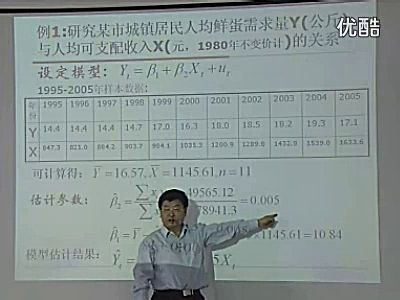 优酷
例1:研究某市城镇居民人均鲜蛋需求量Y(公斤)
与人均可支配收入X(元,1980年不变价计)的关系
设定模型: Yt = β1 + β2Xt + ut
1995-2005年样本数据:
年份 1995 1996 1997 1998 1999 2000 2001 2002 2003 2004 2005
Y 14.4 14.4 14.4 14.7 17.0 16.3 18.0 18.5 18.2 19.3 17.1
X 847.3 821.0 884.2 903.7 984.1 1035.3 1200.9 1289.8 1432.9 1539.0 1633.6
可计算得: Y̅ = 16.57, X̅ = 1145.61, n = 11
估计参数: β̂2 = 49565.12 78941.3 = 0.005
β̂1 = Y̅ 0.005 × 1145.61 = 10.84
模型估计结果: Ŷt 5Xt